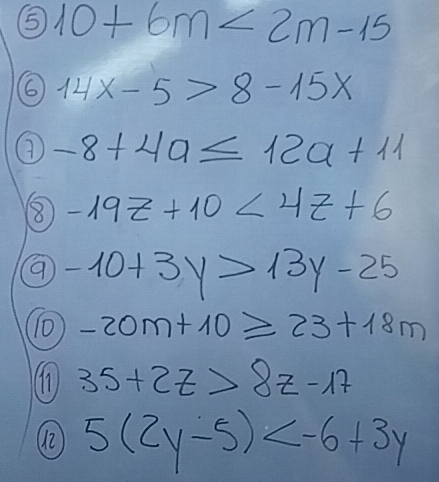 ⑤ 10 + 6m < 2m - 15
⑥ 14x - 5 > 8 - 15x
⑦ -8 + 4a ≤ 12a + 11
⑧ -19z + 10 < 4z + 6
⑨ -10 + 3y > 13y - 25
⑩ -20m + 10 ≥ 23 + 18m
⑪ 35 + 2z > 8z - 17
⑫ 5(2y - 5) < -6 + 3y